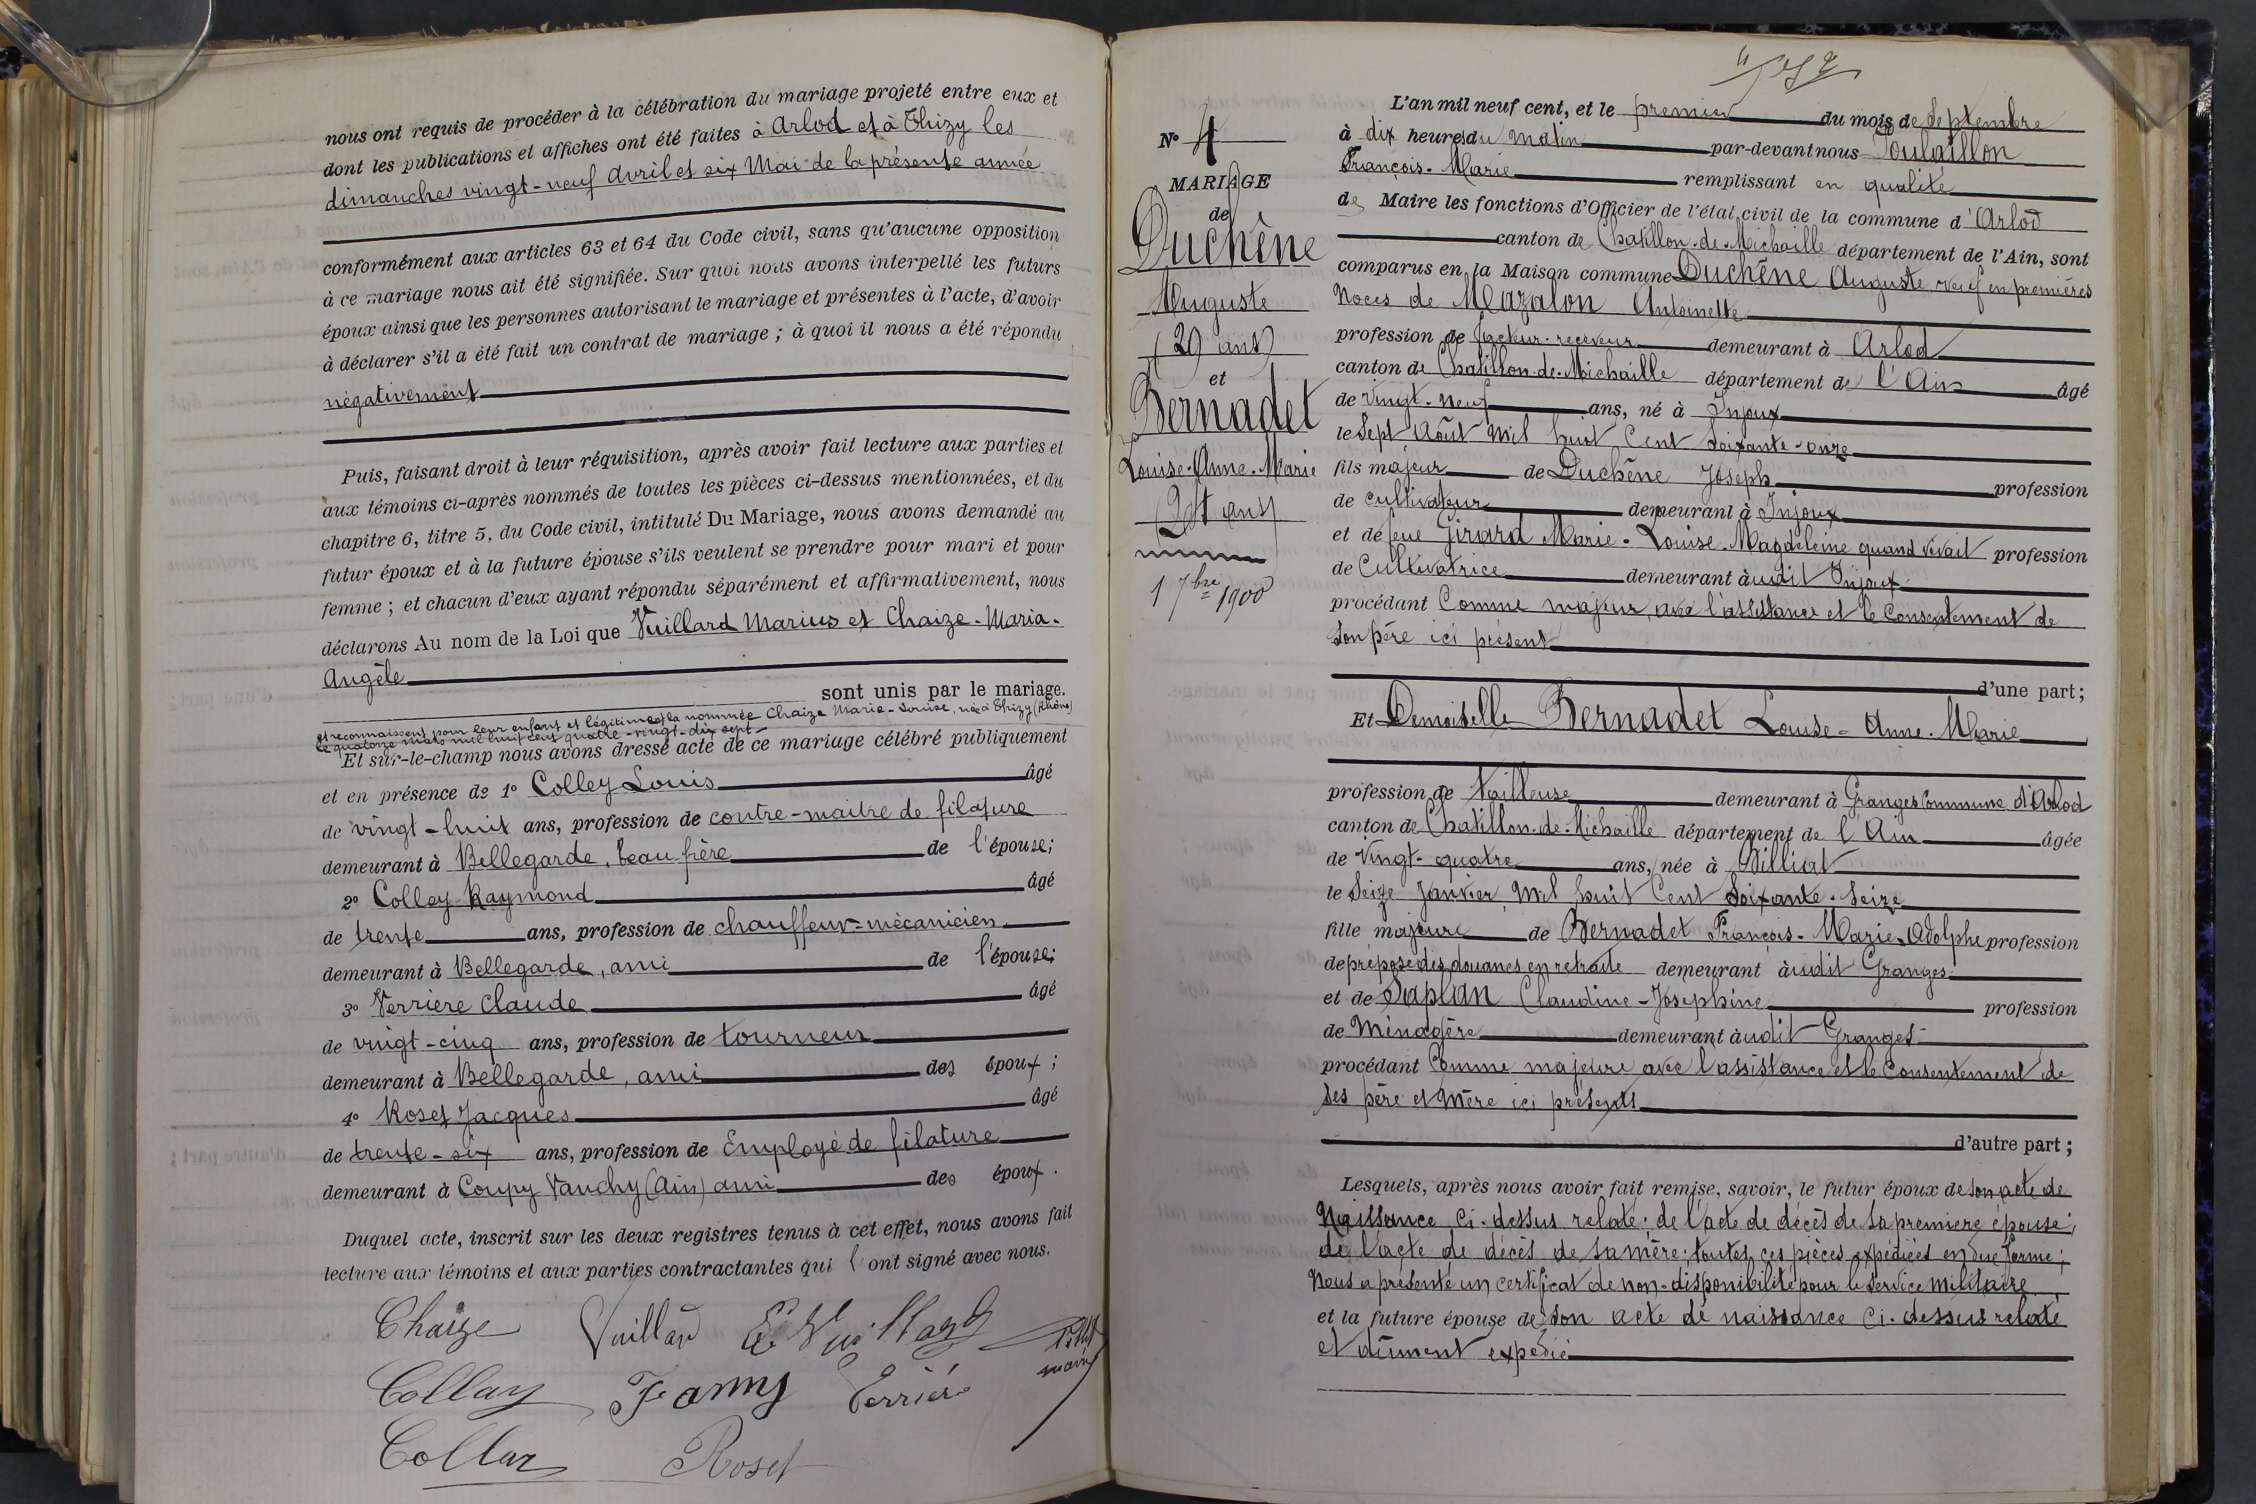 nous ont requis de procéder à la célébration du mariage projeté entre eux et
dont les publications et affiches ont été faites à Arlod et à Thizy les
dimanches vingt-neuf Avril et six Mai de la présente année
conformément aux articles 63 et 64 du Code civil, sans qu'aucune opposition
à ce mariage nous ait été signifiée. Sur quoi nous avons interpellé les futurs
époux ainsi que les personnes autorisant le mariage et présentes à l'acte, d'avoir
à déclarer s'il a été fait un contrat de mariage ; à quoi il nous a été répondu
négativement
Puis, faisant droit à leur réquisition, après avoir fait lecture aux parties et
aux témoins ci-après nommés de toutes les pièces ci-dessus mentionnées, et du
chapitre 6, titre 5, du Code civil, intitulé Du Mariage, nous avons demandé au
futur époux et à la future épouse s'ils veulent se prendre pour mari et pour
femme ; et chacun d'eux ayant répondu séparément et affirmativement, nous
déclarons Au nom de la Loi que Vuillard Marius et Chaize-Maria-
Angèle
sont unis par le mariage.
et reconnaissent pour leur enfant et légitiment la nommée Chaize Marie-Louise, née à Thizy (Rhône)
le quatorze mars mil huit cent quatre-vingt-dix sept
Et sur-le-champ nous avons dressé acte de ce mariage célébré publiquement
et en présence de 1° Colley Louis âgé
de vingt-huit ans, profession de contre-maître de filature
demeurant à Bellegarde, beau frère de l'épouse;
2° Colley Raymond âgé
de trente ans, profession de chauffeur-mécanicien
demeurant à Bellegarde, ami de l'épouse;
3° Verrière Claude âgé
de vingt-cinq ans, profession de tourneur
demeurant à Bellegarde, ami des époux ;
4° Roset Jacques âgé
de trente-six ans, profession de Employé de filature
demeurant à Coupy Vanchy (Ain) ami des époux.
Duquel acte, inscrit sur les deux registres tenus à cet effet, nous avons fait
lecture aux témoins et aux parties contractantes qui l'ont signé avec nous.
Chaize Vuillar E. Vuillard
Colley Fanny Verrière
Roset
N° 4
MARIAGE
de
Duchêne
Auguste
(29 ans)
et
Bernadet
Louise-Anne-Marie
(24 ans)
1 7bre 1900
L'an mil neuf cent, et le premier du mois de Septembre
à dix heures du matin par-devant nous Poulaillon
François-Marie remplissant en qualité
de Maire les fonctions d'Officier de l'état civil de la commune d'Arlod
canton de Chatillon-de-Michaille département de l'Ain, sont
comparus en la Maison commune Duchêne Auguste veuf en premières
Noces de Mazalon Antoinette
profession de facteur-receveur demeurant à Arlod
canton de Chatillon-de-Michaille département de l'Ain âgé
de vingt-neuf ans, né à Injoux
le Sept Août Mil huit Cent Soixante-onze
fils majeur de Duchêne Joseph profession
de cultivateur demeurant à Injoux
et de feue Girard Marie-Louise-Magdeleine quand vivait profession
de Cultivatrice demeurant àudit Injoux
procédant Comme majeur, avec l'assistance et le Consentement de
Son père ici présent
d'une part;
Et Demoiselle Bernadet Louise-Anne-Marie
profession de Tailleuse demeurant à Granges Commune d'Arlod
canton de Chatillon-de-Michaille département de l'Ain âgée
de Vingt-quatre ans, née à Billiat
le Seize Janvier Mil huit Cent Soixante-Seize
fille majeure de Bernadet François-Marie-Adolphe profession
de préposé des douanes en retraite demeurant àudit Granges
et de Saplan Claudine-Josephine profession
de Ménagère demeurant àudit Granges
procédant Comme majeure avec l'assistance et le Consentement de
Ses père et Mère ici présents
d'autre part ;
Lesquels, après nous avoir fait remise, savoir, le futur époux de Son acte de
Naissance ci-dessus relaté; de l'acte de décès de sa première épouse;
de l'acte de décès de sa mère; toutes ces pièces expédiées en due forme;
Nous a présenté un certificat de non-disponibilité pour le Service Militaire
et la future épouse de son acte de naissance ci-dessus relaté
et dûment expédié